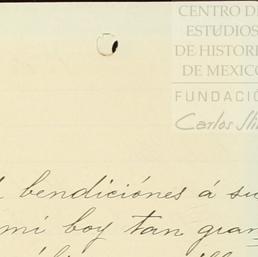 CENTRO DE
ESTUDIOS
DE HISTORIA
DE MEXICO
FUNDACIÓ
Carlos Sli
bendiciónes á su
mi boy tan gran